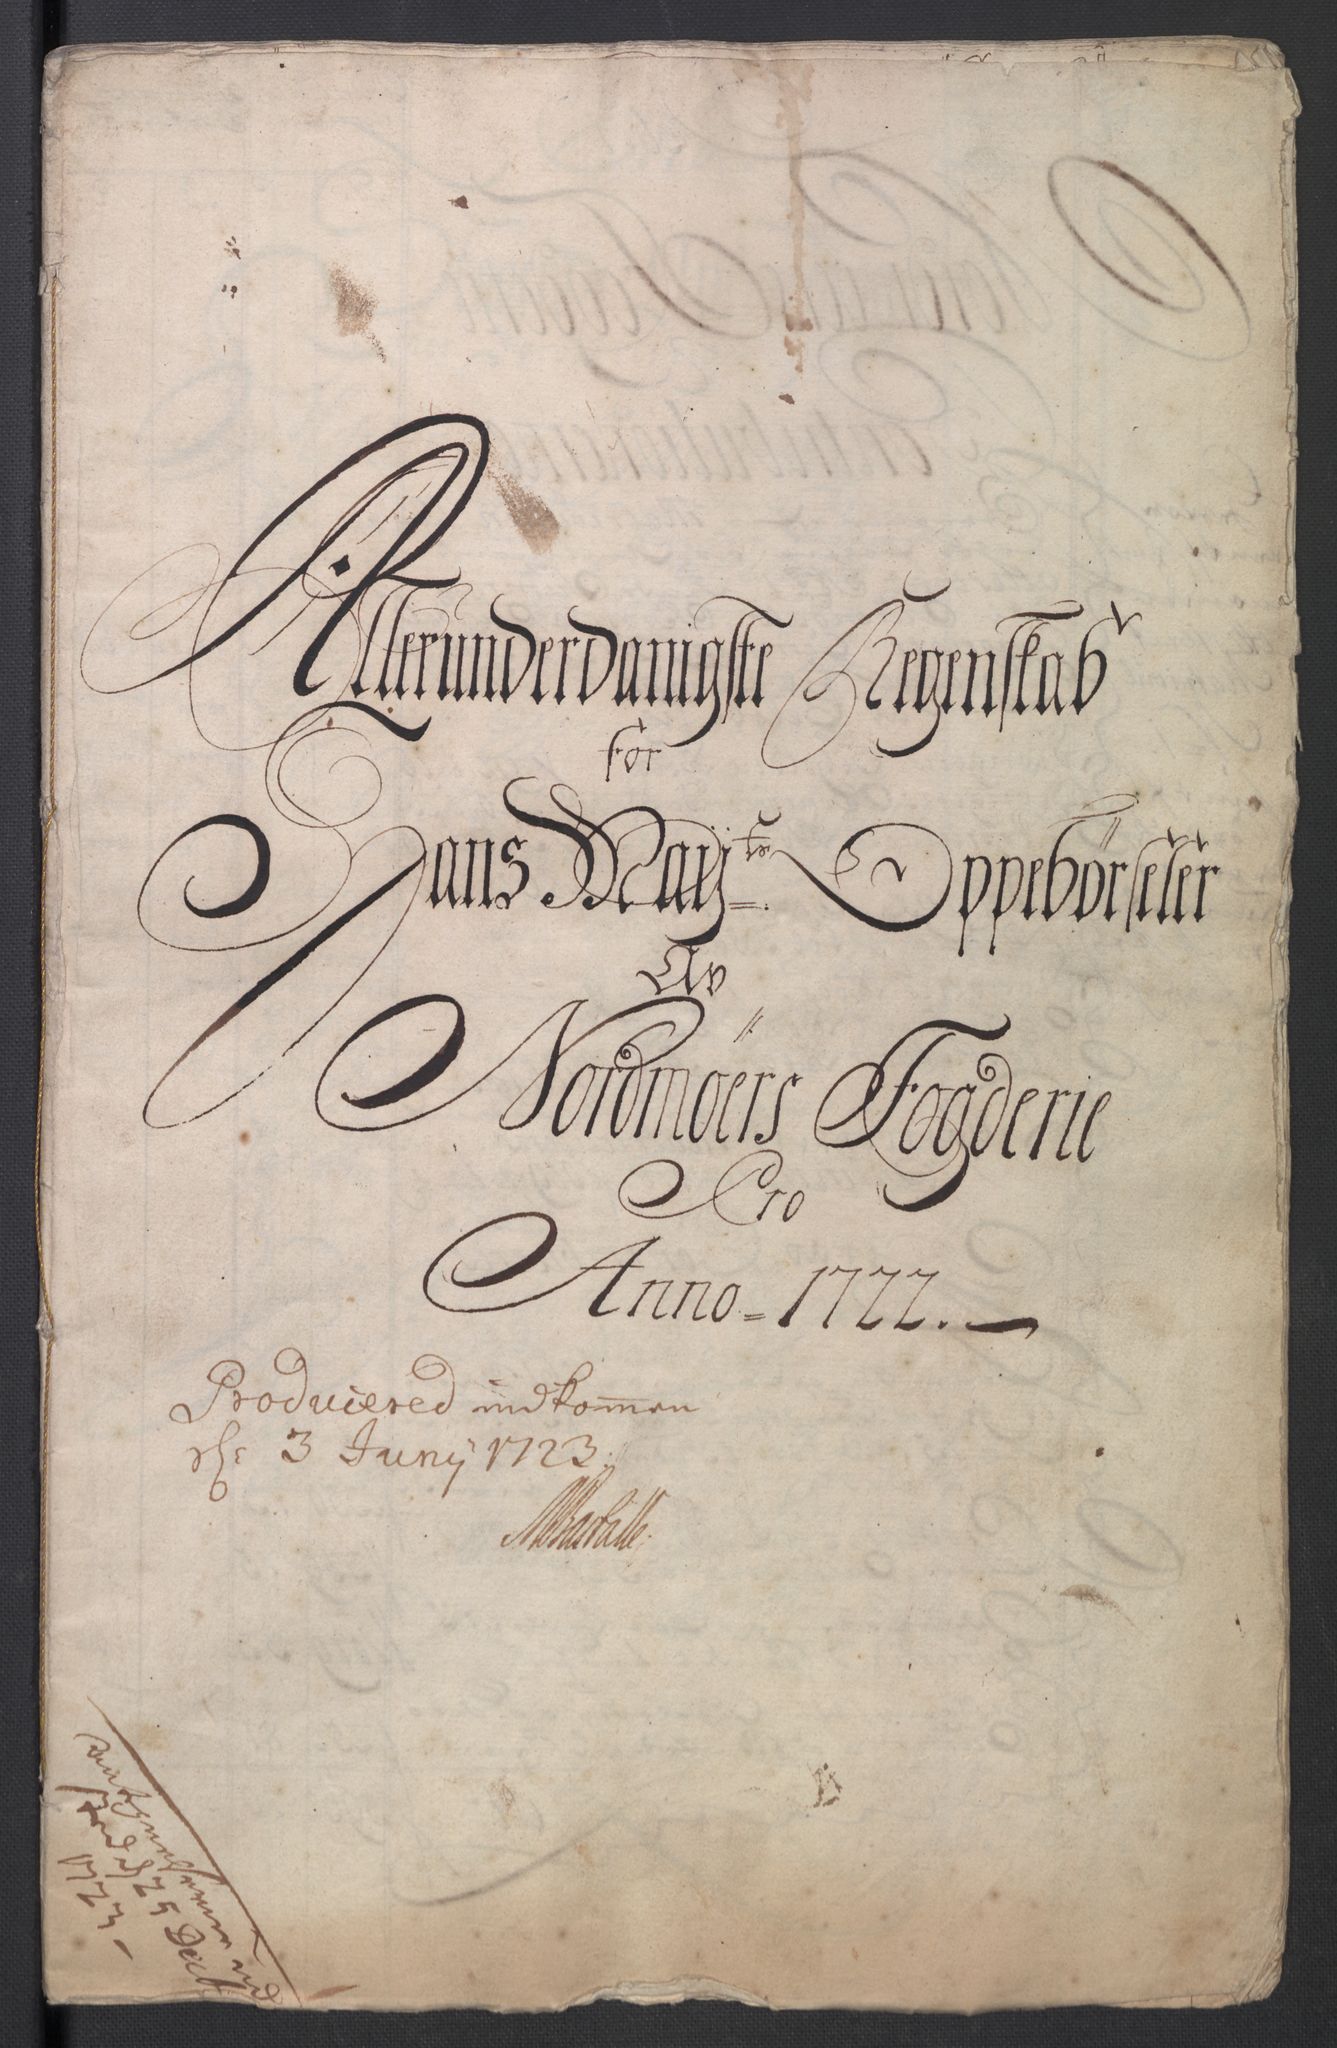 Allerunderdanigste Regenskab
for
Hans May:te Oppebörseler
Av
Nordmöers Fogderie
Pro
Anno = 1722.
Producered indkommen
3 Junij 1723.
25 Dec
1723